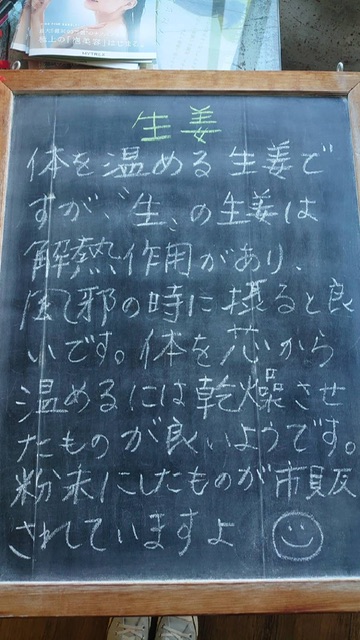 生姜
体を温める生姜で
すが、"生"の生姜は
解熱作用があり、
風邪の時に摂ると良
いです。体を芯から
温めるには乾燥させ
たものが良いようです。
粉末にしたものが市販
されていますよ